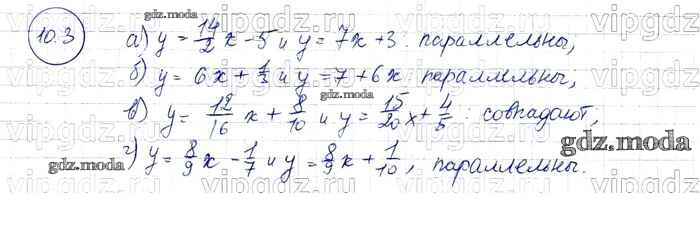 10.3
а) y = 14/2 x - 5 и y = 7x + 3 : параллельны,
б) y = 6x + 1/2 и y = 7 + 6x : параллельны,
в) y = 12/16 x + 8/10 и y = 15/20 x + 4/5 : совпадают,
г) y = 8/9 x - 1/7 и y = 8/9 x + 1/10, параллельны.
gdz.moda
gdz.moda
gdz.moda
gdz.moda
gdz.moda
vipgdz